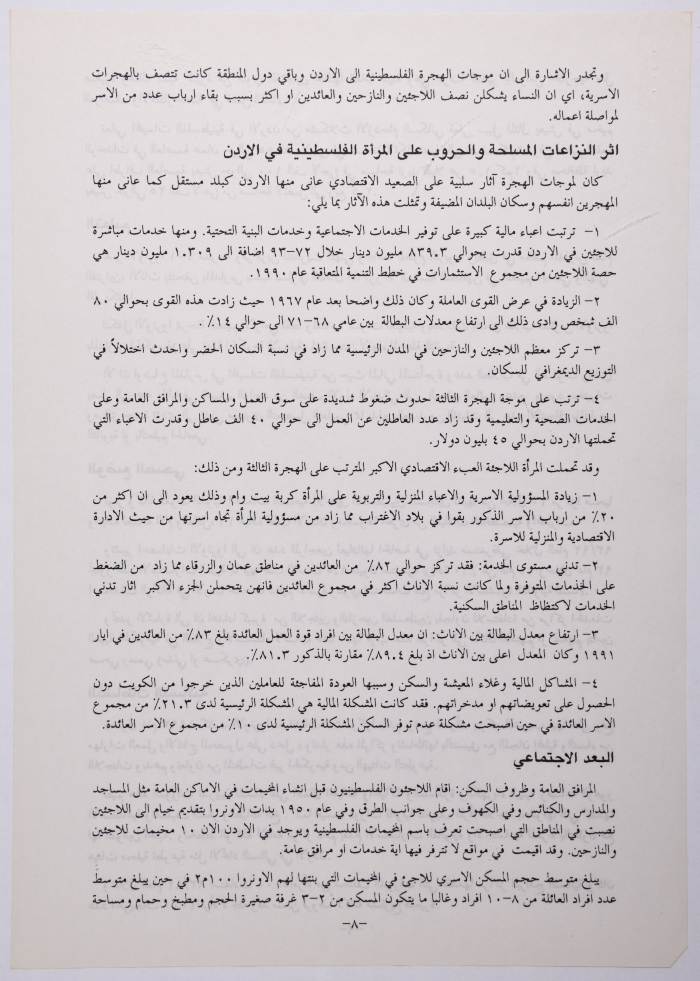 وتجدر الاشارة الى ان موجات الهجرة الفلسطينية الى الاردن وباقي دول المنطقة كانت تتصف بالهجرات
الاسرية، اي ان النساء يشكلن نصف اللاجئين والنازحين والعائدين او اكثر بسبب بقاء ارباب عدد من الاسر
لمواصلة اعماله.
اثر النزاعات المسلحة والحروب على المرأة الفلسطينية في الاردن
كان لموجات الهجرة آثار سلبية على الصعيد الاقتصادي عانى منها الاردن كبلد مستقل كما عانى منها
المهجرين انفسهم وسكان البلدان المضيفة وتمثلت هذه الآثار بما يلي:
١- ترتبت اعباء مالية كبيرة على توفير الخدمات الاجتماعية وخدمات البنية التحتية. ومنها خدمات مباشرة
للاجئين في الاردن قدرت بحوالي ٨٣٩.٣ مليون دينار خلال ٧٢-٩٣ اضافة الى ١.٣٠٩ مليون دينار هي
حصة اللاجئين من مجموع الاستثمارات في خطط التنمية المتعاقبة عام ١٩٩٠.
٢- الزيادة في عرض القوى العاملة وكان ذلك واضحا بعد عام ١٩٦٧ حيث زادت هذه القوى بحوالي ٨٠
الف شخص وادى ذلك الى ارتفاع معدلات البطالة بين عامي ٦٨-٧١ الى حوالي ١٤٪ .
٣- تركز معظم اللاجئين والنازحين في المدن الرئيسية مما زاد في نسبة السكان الحضر واحدث اختلالاً في
التوزيع الديمغرافي للسكان.
٤- ترتب على موجة الهجرة الثالثة حدوث ضغوط شديدة على سوق العمل والمساكن والمرافق العامة وعلى
الخدمات الصحية والتعليمية وقد زاد عدد العاطلين عن العمل الى حوالي ٤٠ الف عاطل وقدرت الاعباء التي
تحملتها الاردن بحوالي ٤٥ بليون دولار.
وقد تحملت المرأة اللاجئة العبء الاقتصادي الاكبر المترتب على الهجرة الثالثة ومن ذلك:
١- زيادة المسؤولية الاسرية والاعباء المنزلية والتربوية على المرأة كربة بيت وام وذلك يعود الى ان اكثر من
٢٠٪ من ارباب الاسر الذكور بقوا في بلاد الاغتراب مما زاد من مسؤولية المرأة تجاه اسرتها من حيث الادارة
الاقتصادية والمنزلية للاسرة.
٢- تدني مستوى الخدمة: فقد تركز حوالي ٨٢٪ من العائدين في مناطق عمان والزرقاء مما زاد من الضغط
على الخدمات المتوفرة ولما كانت نسبة الاناث اكثر في مجموع العائدين فانهن يتحملن الجزء الاكبر اثار تدني
الخدمات لاكتظاظ المناطق السكنية.
٣- ارتفاع معدل البطالة بين الاناث: ان معدل البطالة بين افراد قوة العمل العائدة بلغ ٨٣٪ من العائدين في ايار
١٩٩١ وكان المعدل اعلى بين الاناث اذ بلغ ٨٩.٤٪ مقارنة بالذكور ٨١.٣٪.
٤- المشاكل المالية وغلاء المعيشة والسكن وسببها العودة المفاجئة للعاملين الذين خرجوا من الكويت دون
الحصول على تعويضاتهم او مدخراتهم. فقد كانت المشكلة المالية هي المشكلة الرئيسية لدى ٢١.٣٪ من مجموع
الاسر العائدة في حين اصبحت مشكلة عدم توفر السكن المشكلة الرئيسية لدى ١٠٪ من مجموع الاسر العائدة.
البعد الاجتماعي
المرافق العامة وظروف السكن: اقام اللاجئون الفلسطينيون قبل انشاء المخيمات في الاماكن العامة مثل المساجد
والمدارس والكنائس وفي الكهوف وعلى جوانب الطرق وفي عام ١٩٥٠ بدات الاونروا بتقديم خيام الى اللاجئين
نصبت في المناطق التي اصبحت تعرف باسم المخيمات الفلسطينية ويوجد في الاردن الان ١٠ مخيمات للاجئين
والنازحين. وقد اقيمت في مواقع لا تترفر فيها اية خدمات او مرافق عامة.
يبلغ متوسط حجم المسكن الاسري للاجئ في المخيمات التي بنتها لهم الاونروا ١٠٠م٢ في حين يبلغ متوسط
عدد افراد العائلة من ٨-١٠ افراد وغالبا ما يتكون المسكن من ٢-٣ غرفة صغيرة الحجم ومطبخ وحمام ومساحة
-٨-